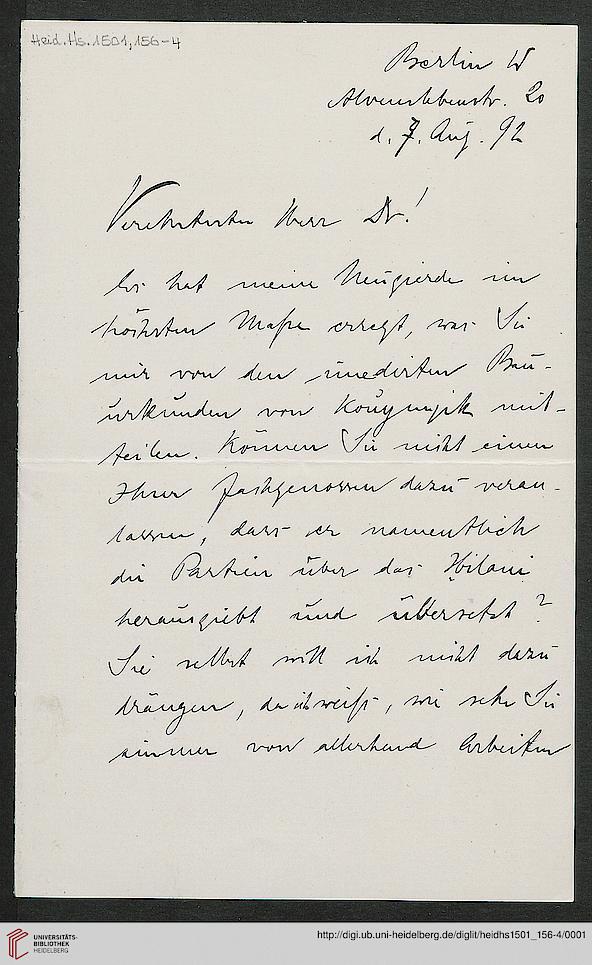 Heid.Hs.1501,156-4
Berlin W
Alvenslebenstr. 20
d. 7. Aug. 92
Verehrtester Herr Dr!
Es hat meine Neugierde im
höchsten Maße erregt, was Sie
mir von den unedirten Bau-
urkunden von Kouyunjik mit-
teilen. Können Sie nicht einen
Ihrer Fachgenossen dazu veran-
lassen, dass er namentlich
die Partien über das Hilani
herausgiebt und übersetzt?
Sie selbst will ich nicht dazu
drängen, da ich weiß, wie sehr Sie
immer von allerhand Arbeiten
UNIVERSITÄTS-
BIBLIOTHEK
HEIDELBERG
http://digi.ub.uni-heidelberg.de/diglit/heidhs1501_156-4/0001